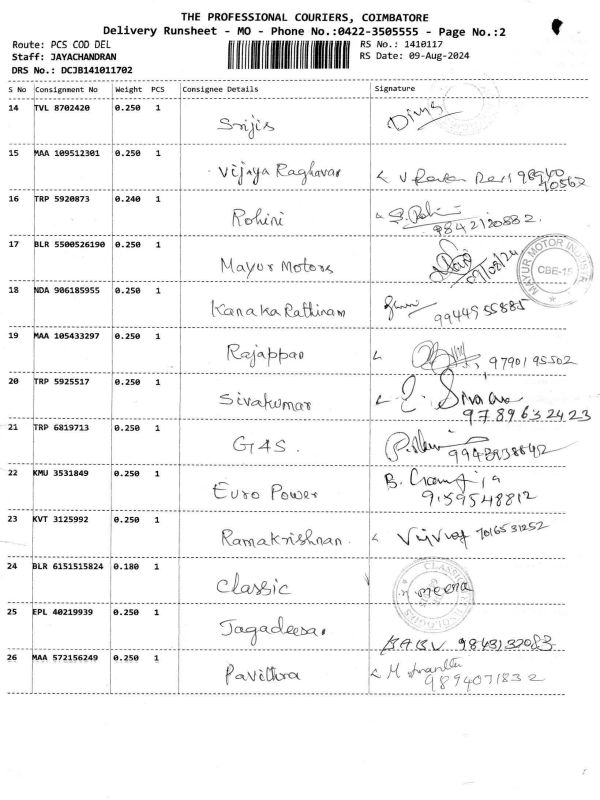 THE PROFESSIONAL COURIERS, COIMBATORE
Delivery Runsheet - MO - Phone No.:0422-3505555 - Page No.:2
Route: PCS COD DEL RS No.: 1410117
Staff: JAYACHANDRAN RS Date: 09-Aug-2024
DRS No.: DCJB141011702
S No Consignment No Weight PCS Consignee Details Signature
14 TVL 8702420 0.250 1
Srijis
15 MAA 109512301 0.250 1
Vijaya Raghavan 98940
40562
16 TRP 5920873 0.240 1
Rohini
9842120882.
17 BLR 5500526190 0.250 1
Mayur Motors 09/08/24
MAYUR MOTOR INDUSTR
CBE-15
18 NDA 906185955 0.250 1
Kanaka Rathinam 9944955885
19 MAA 105433297 0.250 1
Rajappan 9790195502
20 TRP 5925517 0.250 1
Sivakumar
9789632423
21 TRP 6819713 0.250 1
G4S.
9948938842
22 KMU 3531849 0.250 1
Euro Power 9159548812
23 KVT 3125992 0.250 1
Ramakrishnan. 7016531252
24 BLR 6151515824 0.180 1
Classic meena
25 EPL 40219939 0.250 1
Jagadeesan
BABU 9843132083
26 MAA 572156249 0.250 1
Pavithra
9894071832